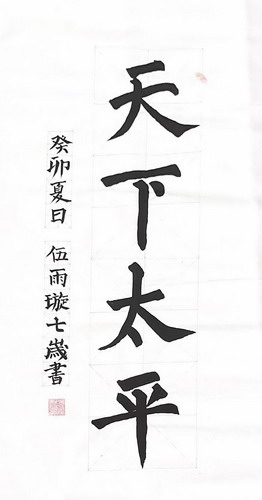 天下太平
癸卯夏日 伍雨璇七歲書